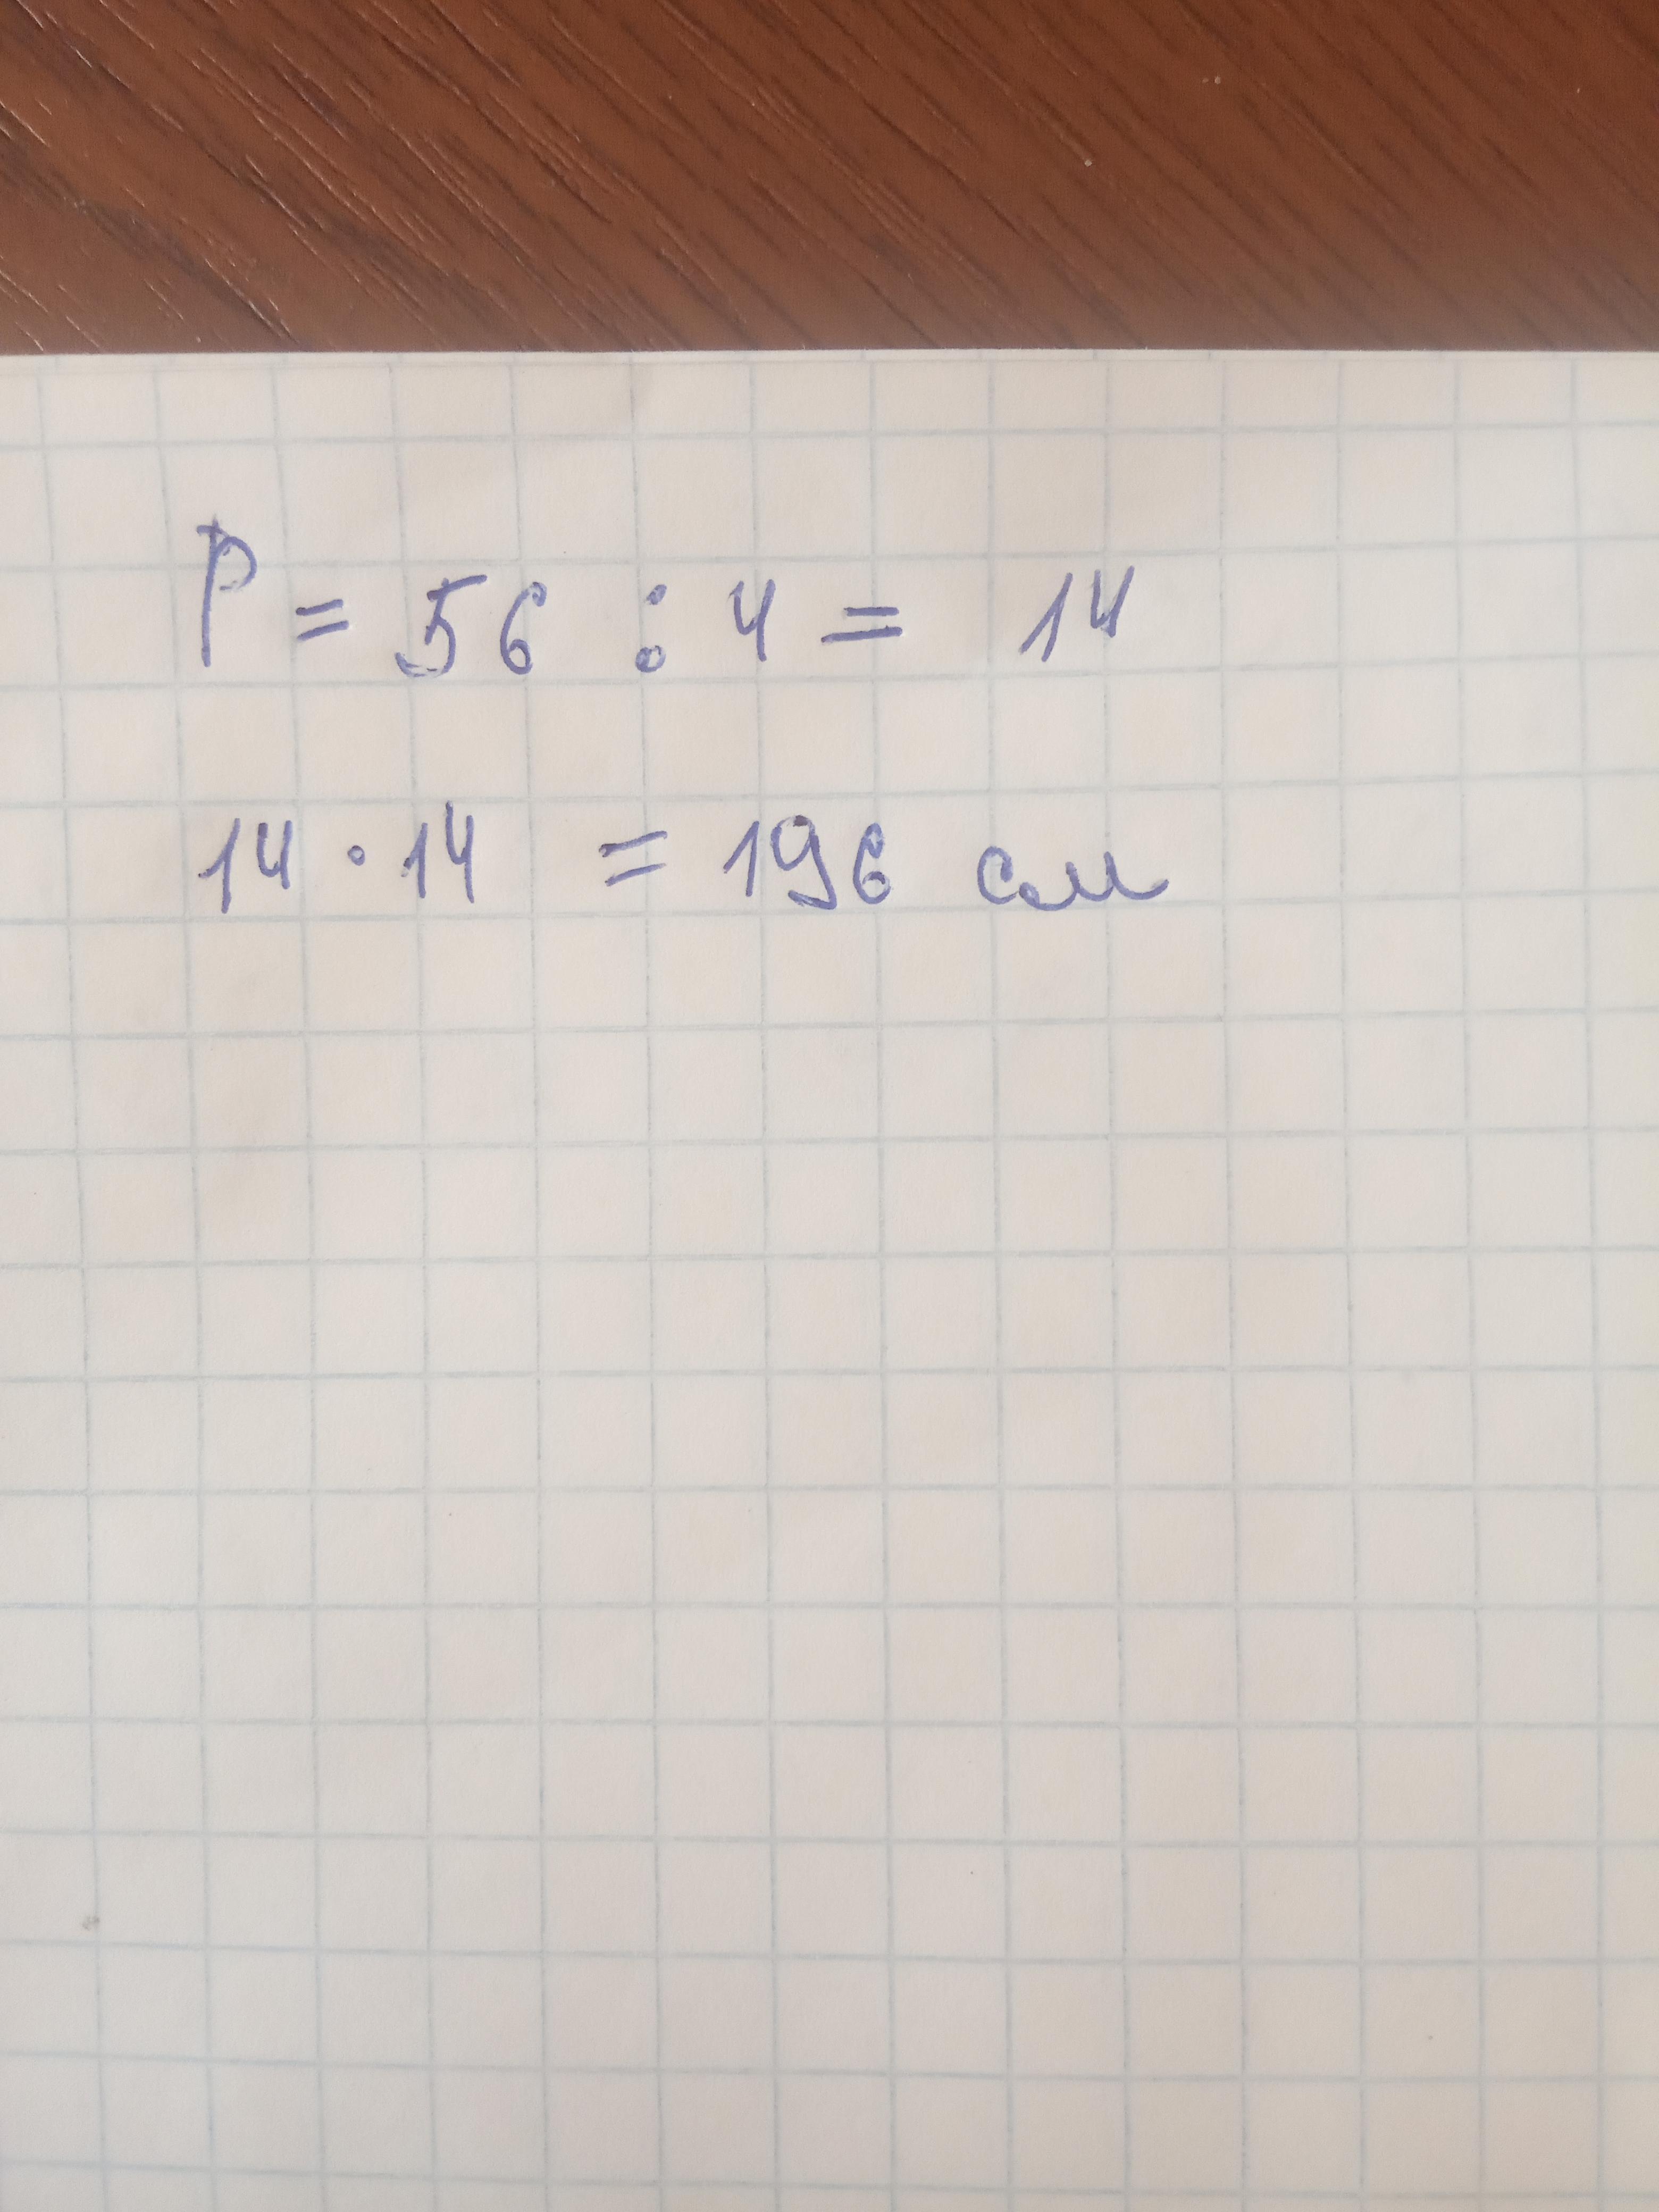 P = 56 : 4 = 14
14 · 14 = 196 см